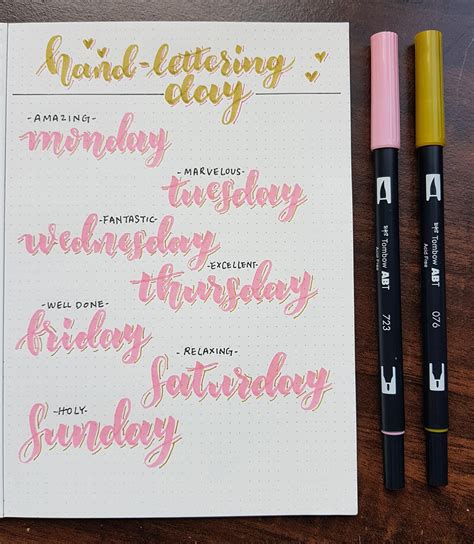 hand-lettering
day
-AMAZING-
monday
-MARVELOUS-
tuesday
-FANTASTIC-
wednesday
-EXCELLENT-
thursday
-WELL DONE-
friday
-RELAXING-
saturday
-HOLY-
sunday
Tombow ABT
Acid Free
723
Tombow ABT
Acid Free
076